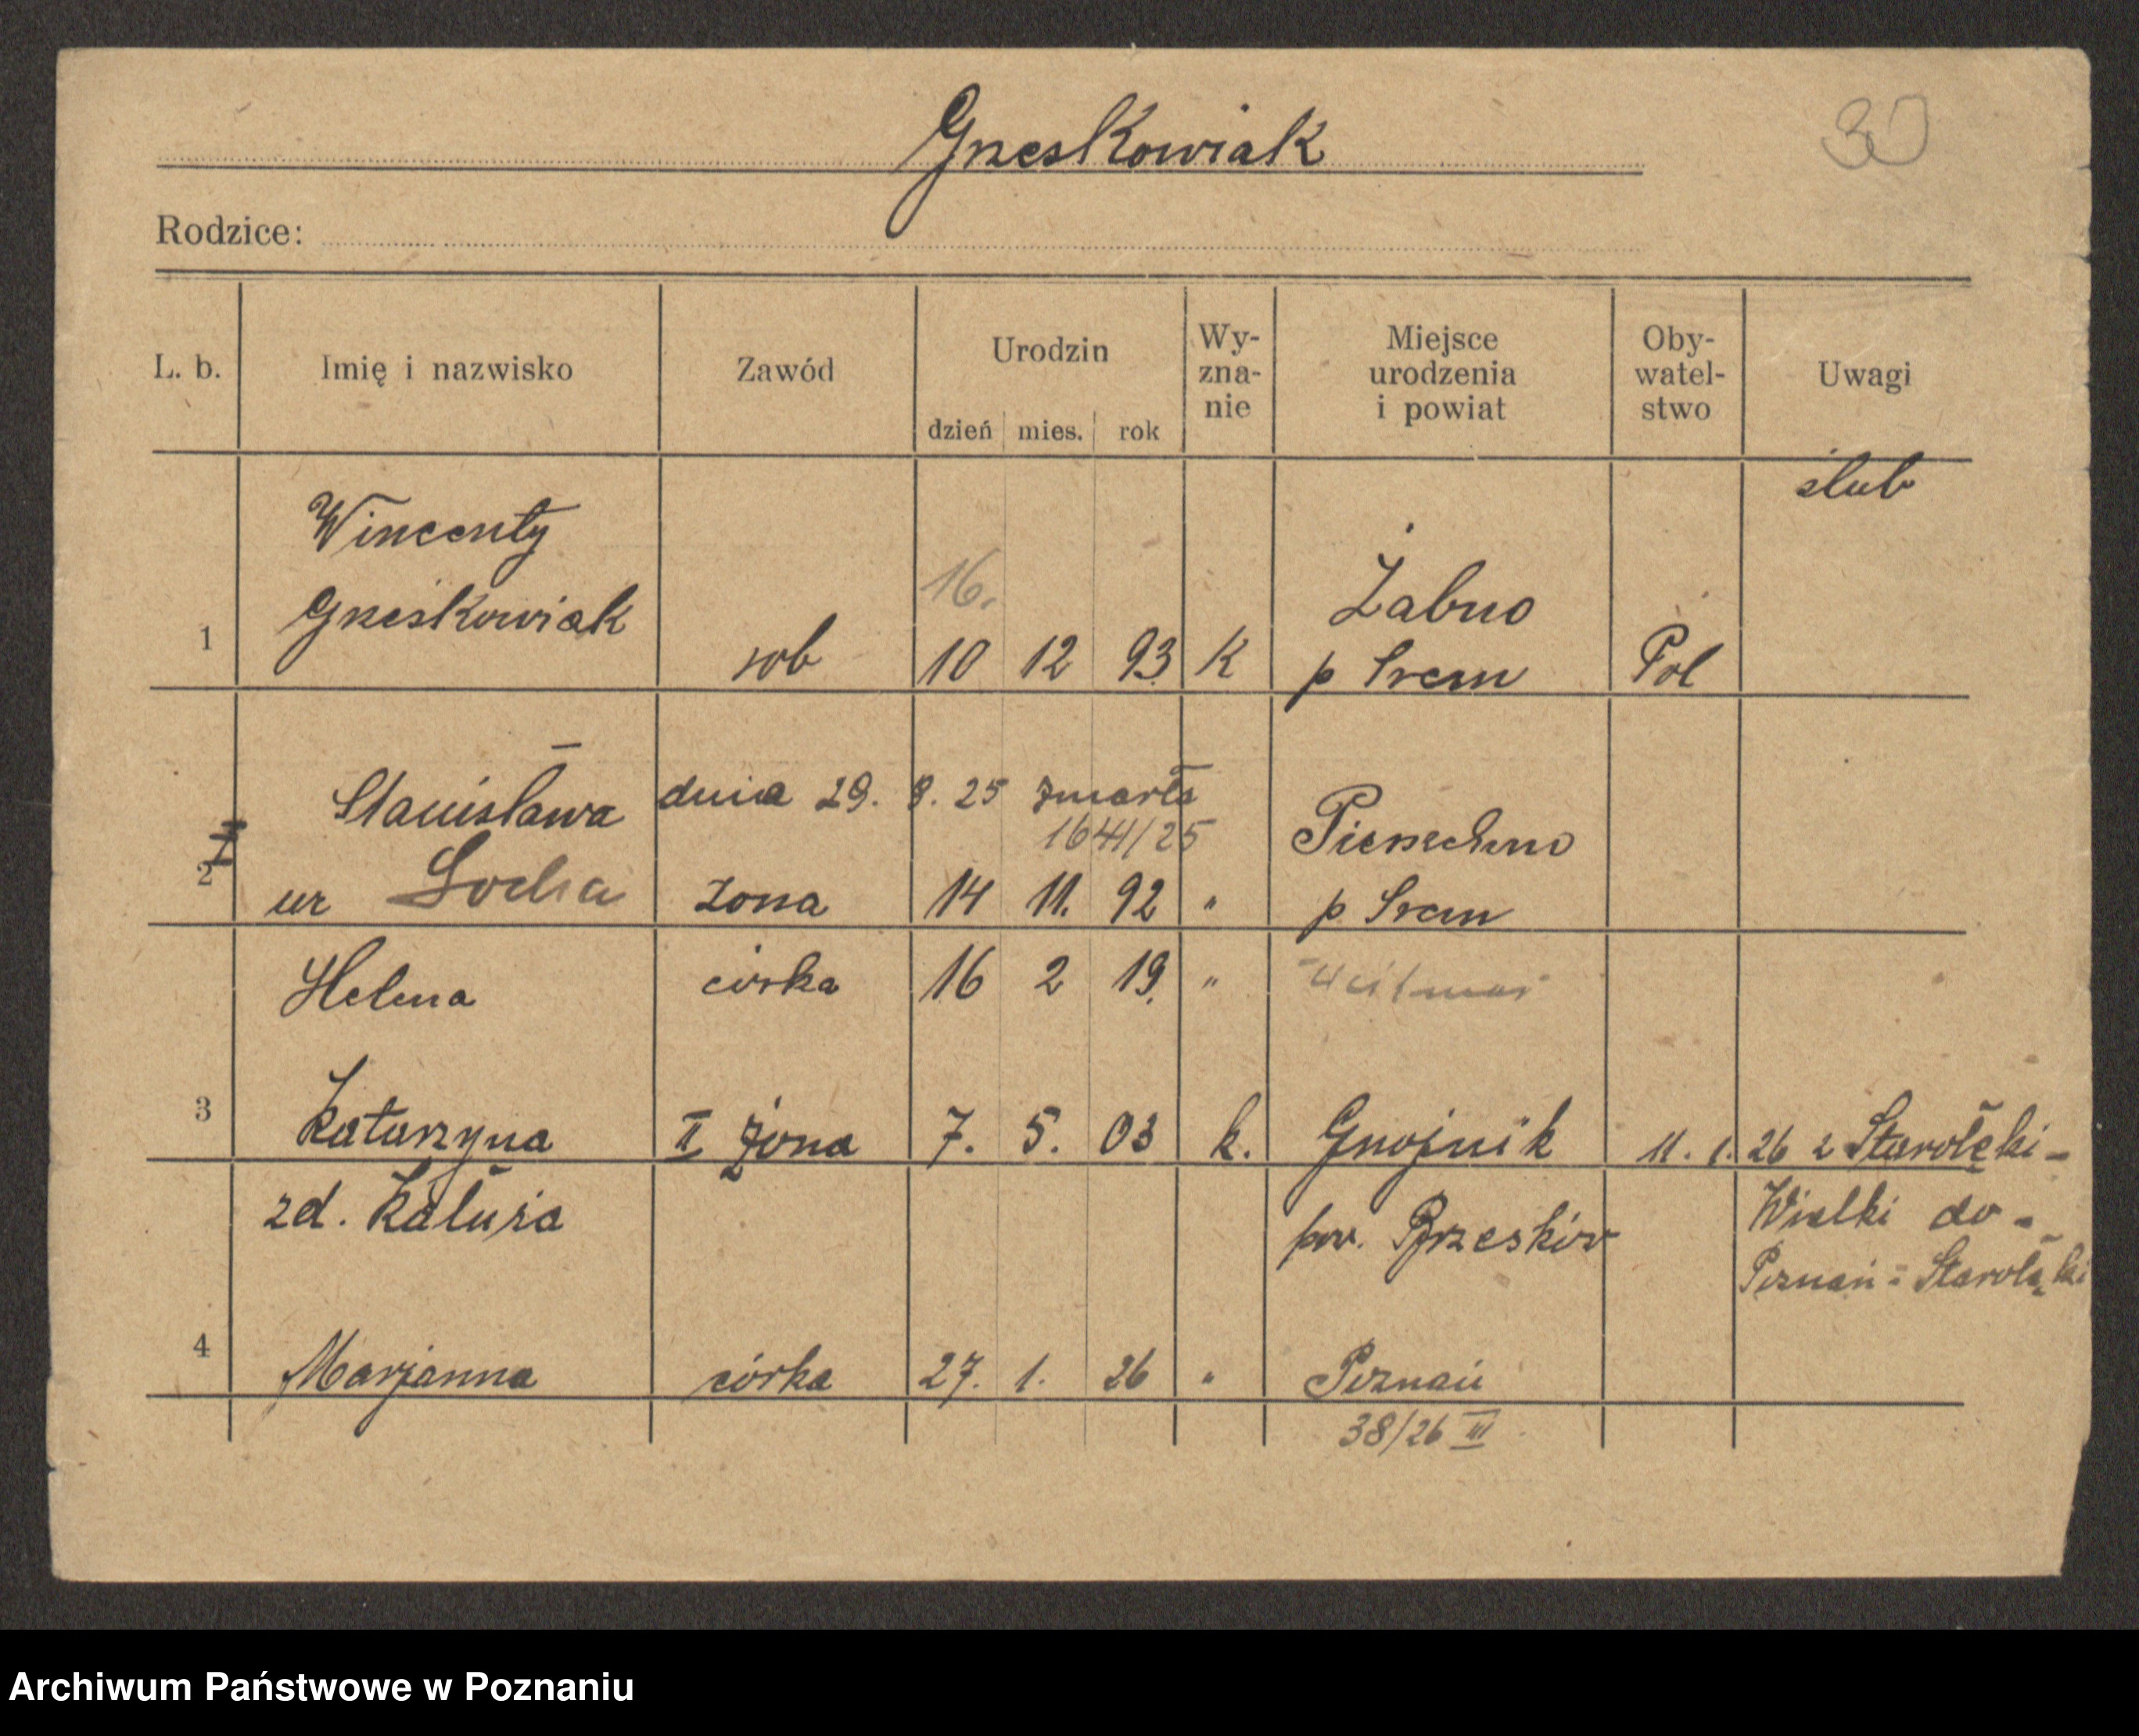 Grześkowiak
30
Rodzice:
L. b. Imię i nazwisko Zawód Urodzin Wy-zna-nie Miejsce urodzenia i powiat Oby-watel-stwo Uwagi
dzień mies. rok
ślub
Wincenty
16.
Grześkowiak Żabno
1 rob 10 12 93 K p Srem Pol
Stanisława dnia 29. 8. 25 zmarła
1641/25
Pierzchno
2 ur Socha żona 14 11. 92 " p Srem
Helena córka 16 2 19. "
3 Katarzyna II żona 7. 5. 03 k. Gnojnik 11. 1. 26 z Starołęki-
zd. Kałuża pow. Brzesków Wielki do-
Poznań-Starołęki
4 Marjanna córka 27. 1. 26 " Poznań
38/26 III
Archiwum Państwowe w Poznaniu